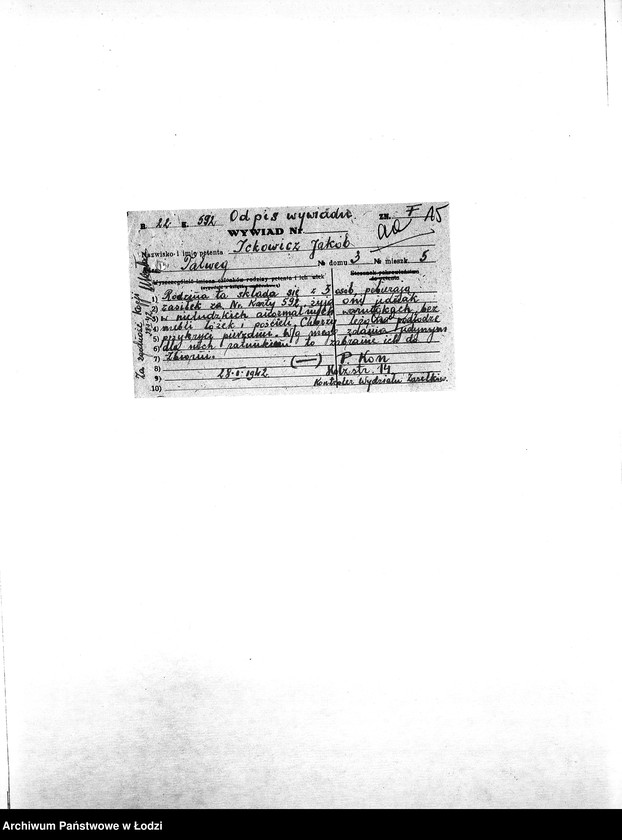 B. 22 K. 592 Odpis wywiadu ZN. F A5
WYWIAD Nr
Nazwisko i imię petenta Ickowicz Jakob
Talweg № domu 3 № mieszk. 5
Wyszczególnić imiona członków rodziny petenta i ich wiek
Stosunek pokrewieństwa do petenta
1) Rodzina ta składa się z 3 osób, pobierają
2) zasiłek za Nr. Karty 592, żyją oni jednak
3) w nieludzkich warunkach, bez
4) mebli łóżek i pościeli. Chorzy leżą na podłodze
5) przykryci pierzyną. W/g mego zdania jedynym
6) dla nich ratunkiem to zabranie ich do
7)
8) (—) P. Kon
28.I.1942 Holzstr. 14
9) Kontroler Wydziału Zasiłków.
10)
Za zgodność
Archiwum Państwowe w Łodzi